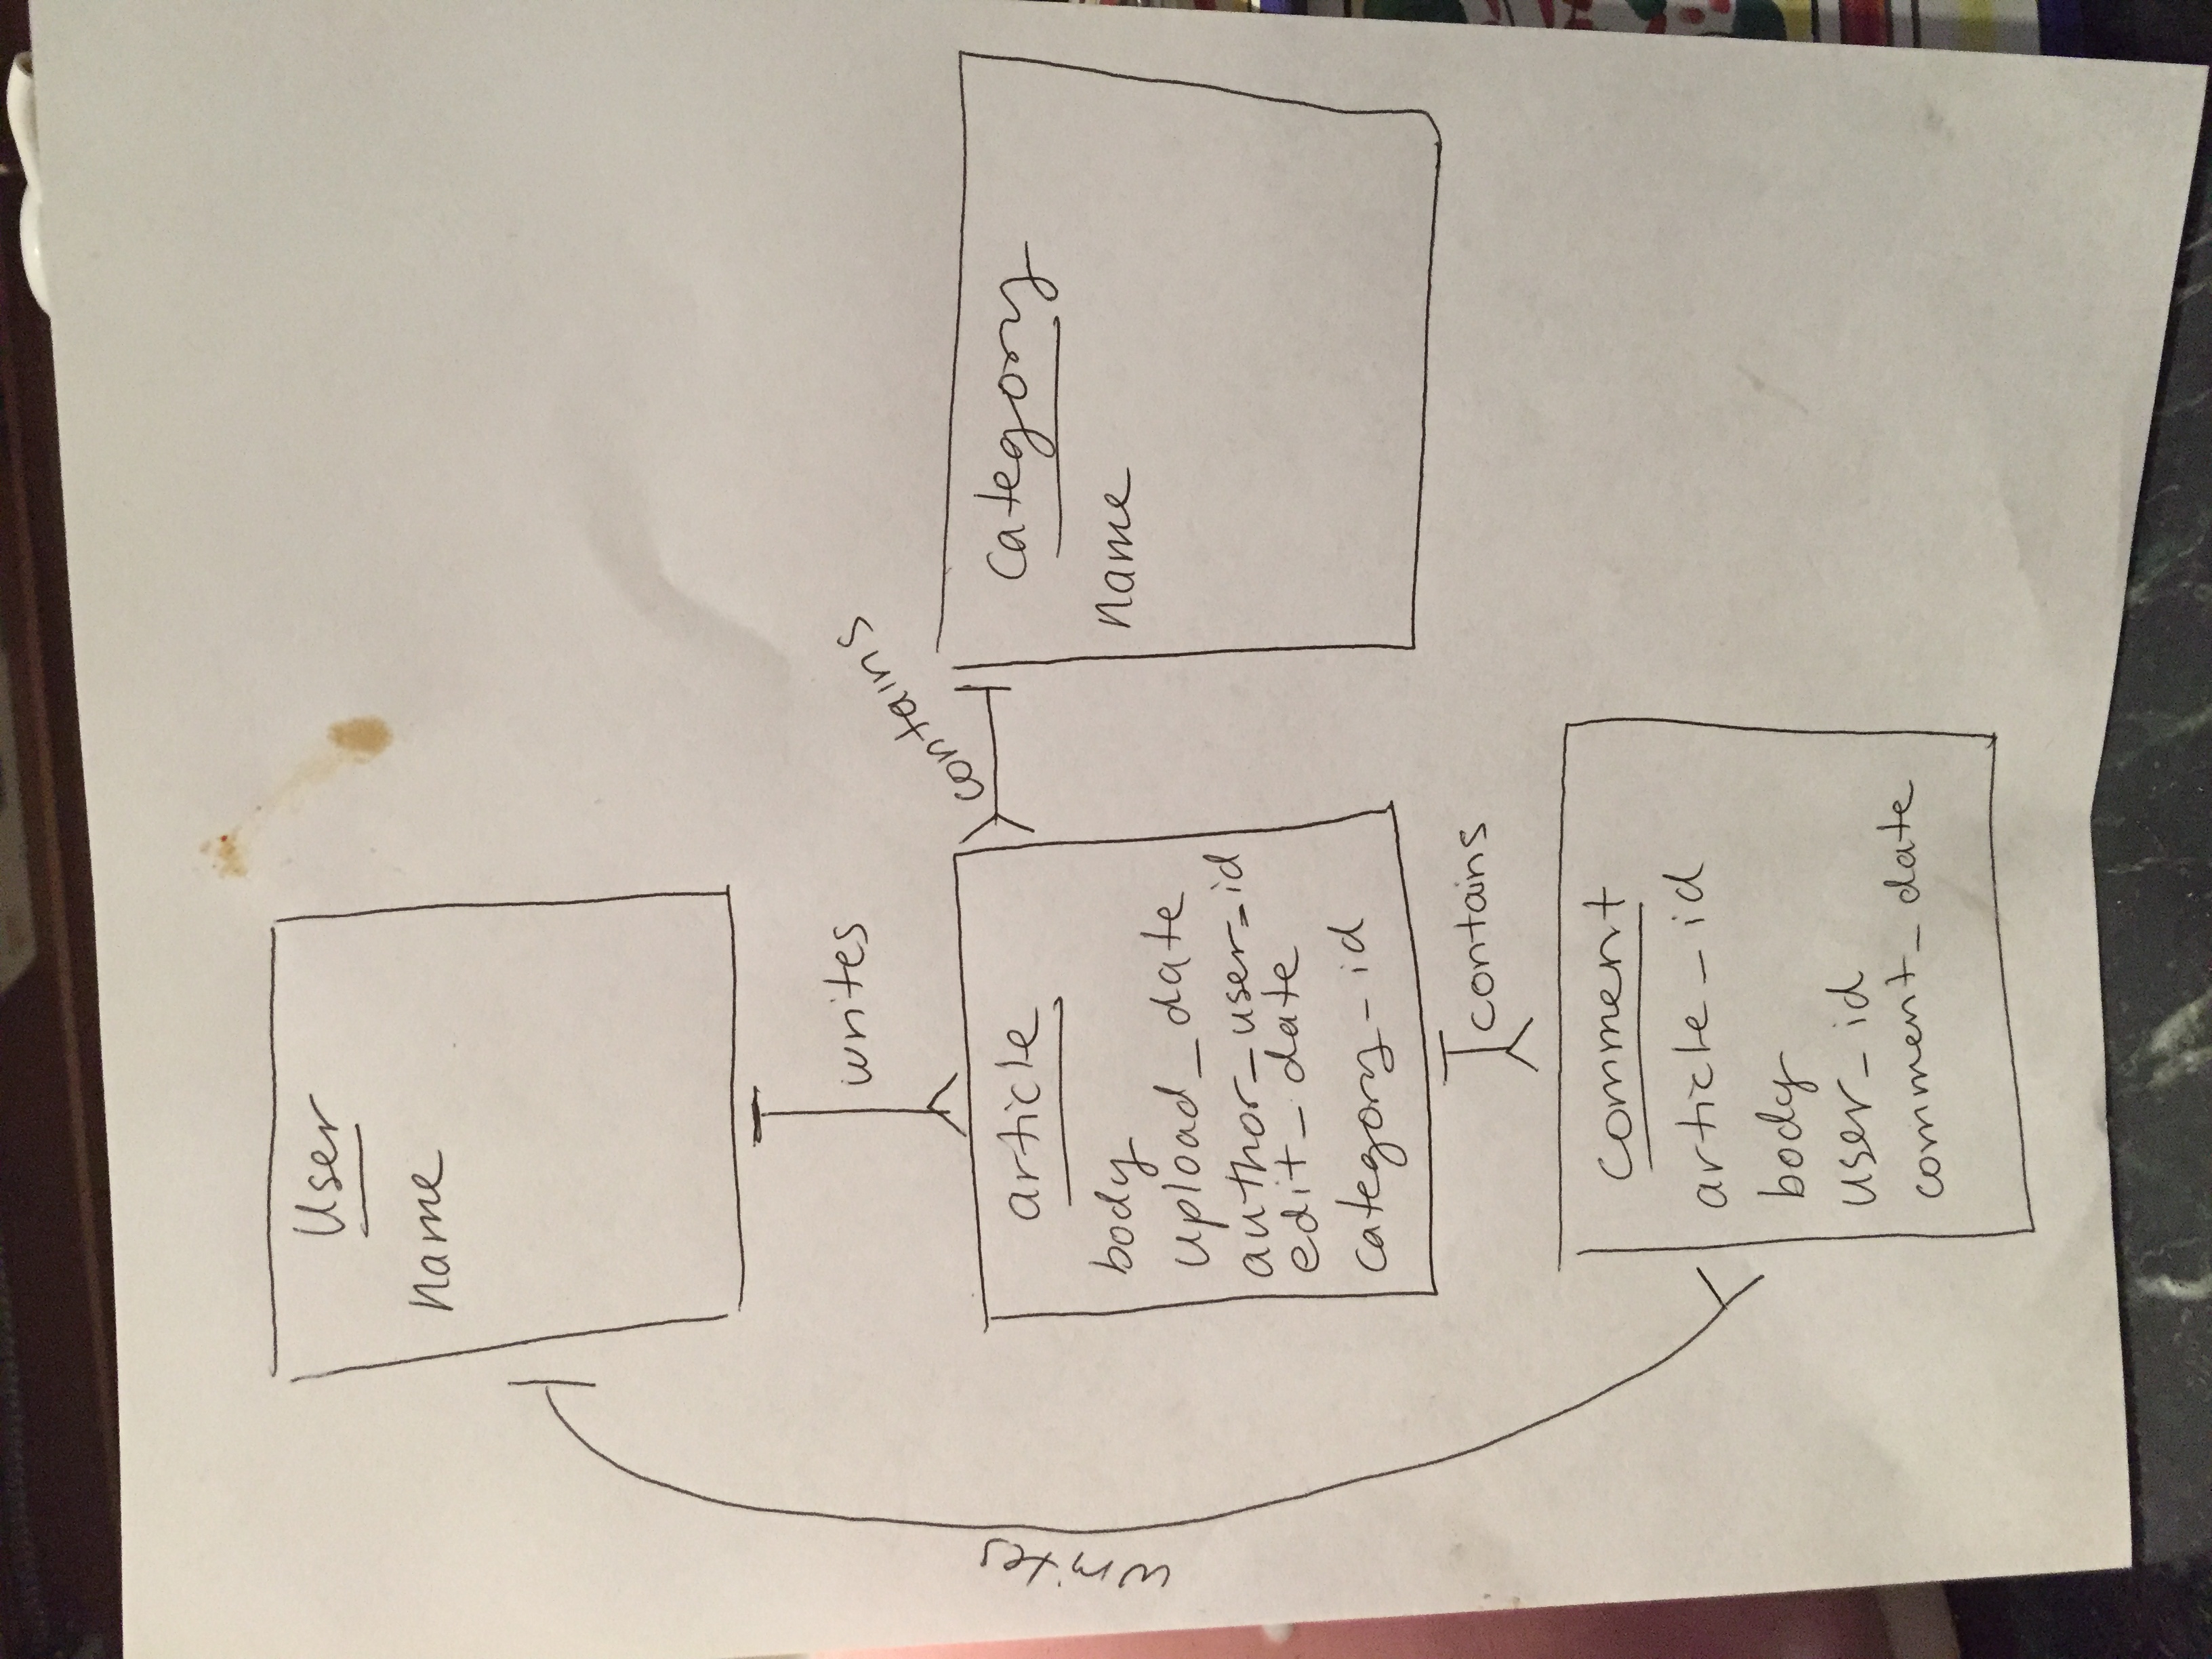 User
name
writes
writes
contains
article
body
upload_date
author_user_id
edit_date
category_id
category
name
contains
comment
article_id
body
user_id
comment_date